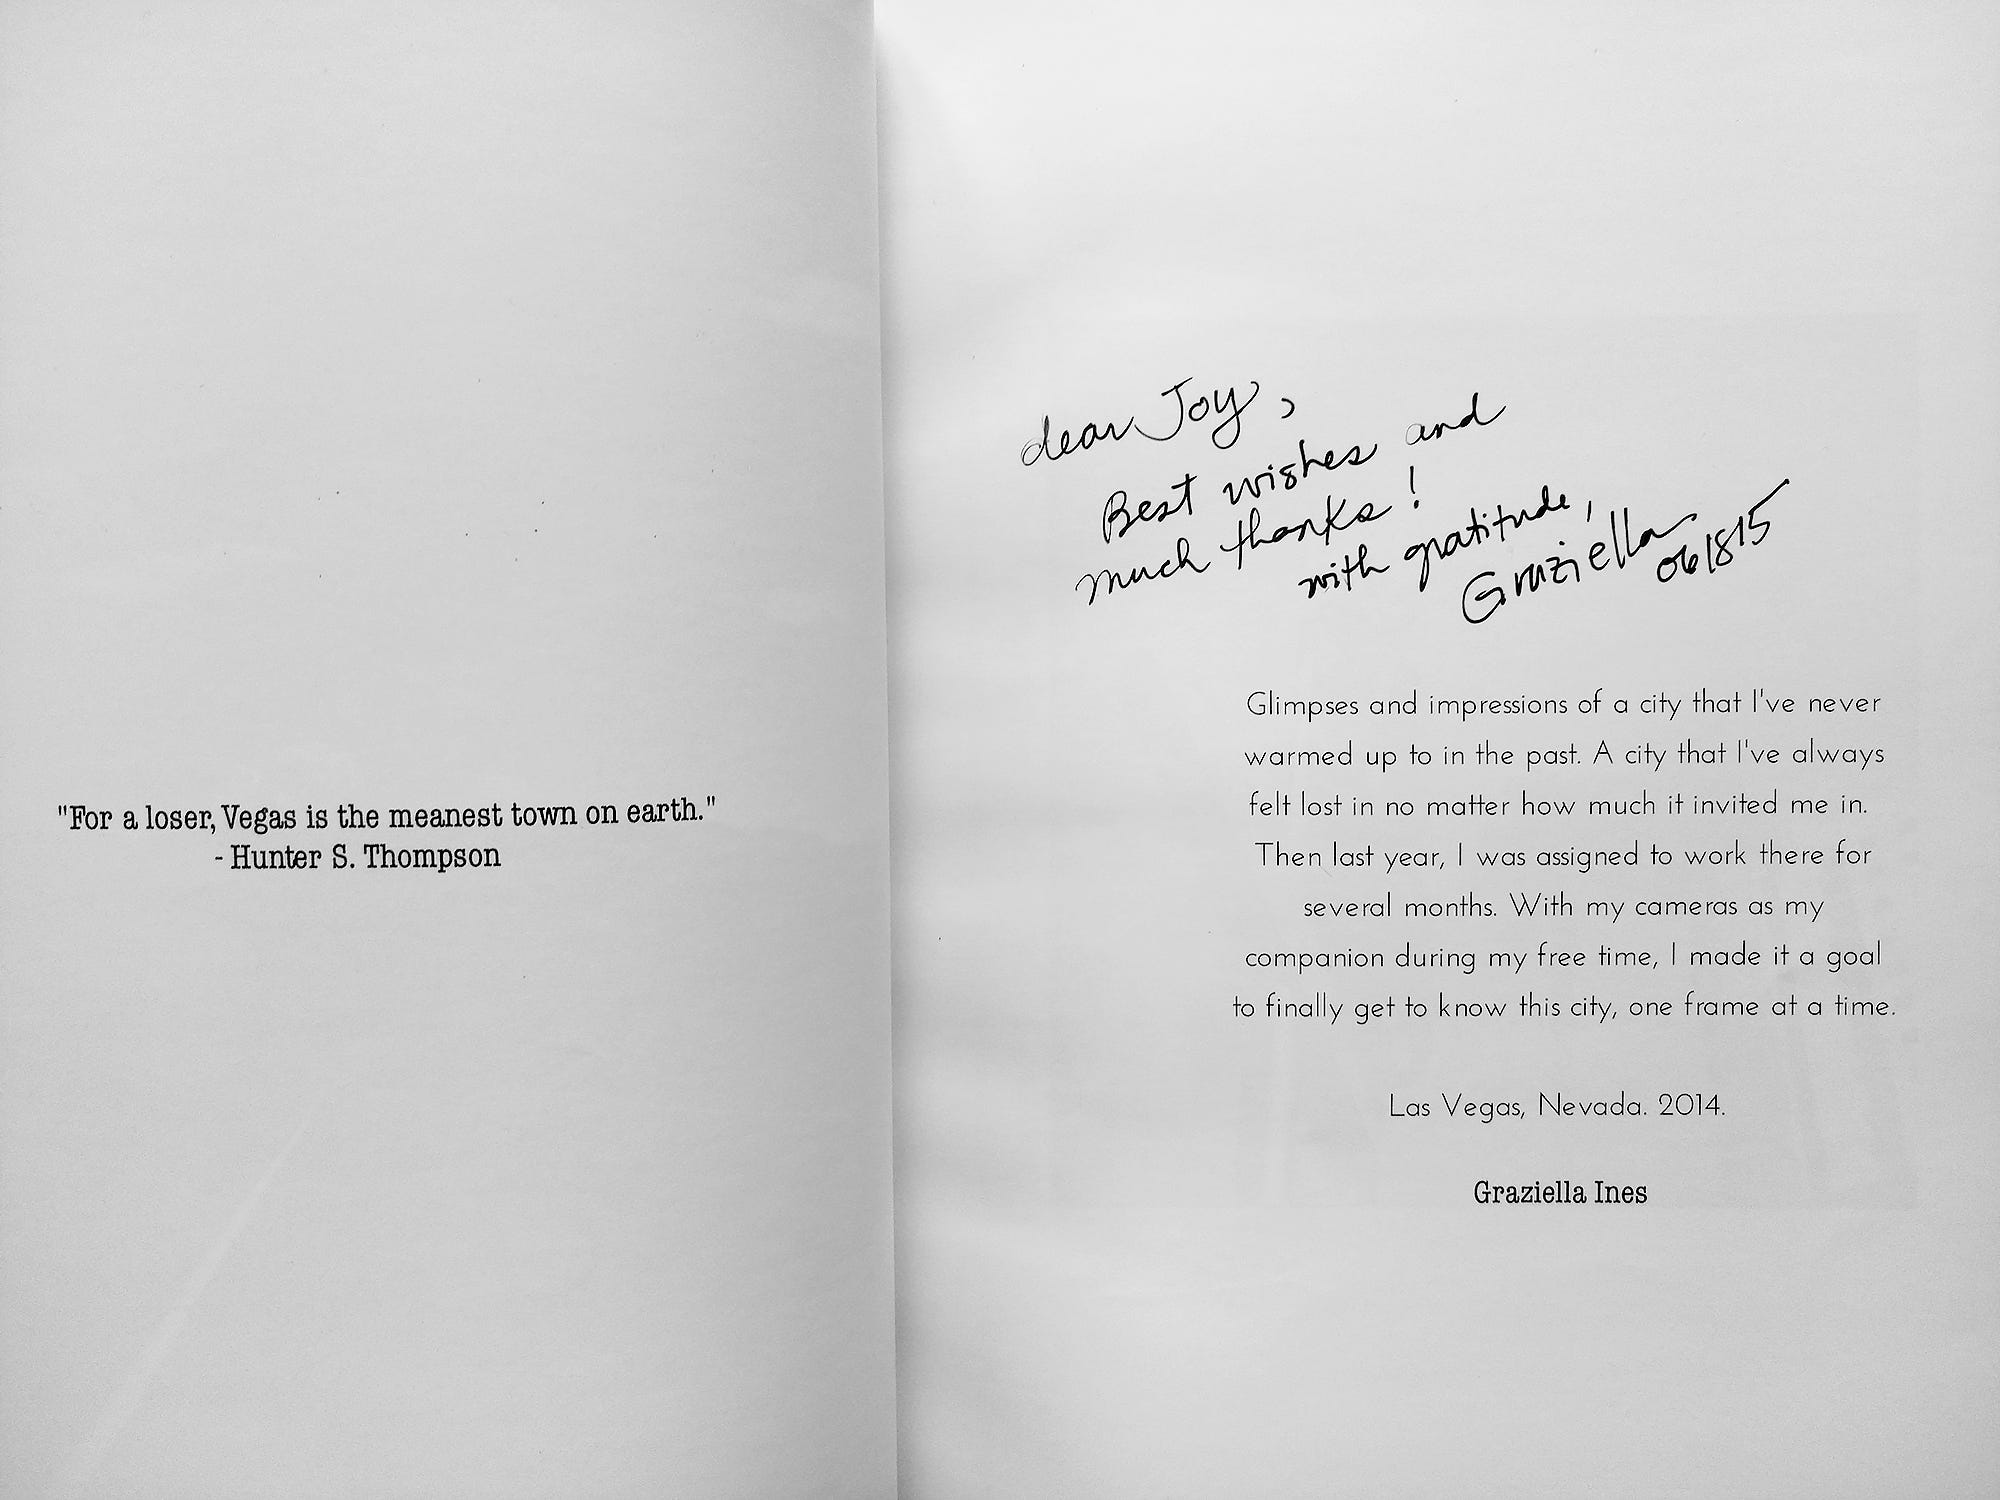 "For a loser, Vegas is the meanest town on earth."
- Hunter S. Thompson
dear Joy,
Best wishes and
much thanks!
with gratitude,
Graziella
061815
Glimpses and impressions of a city that I've never
warmed up to in the past. A city that I've always
felt lost in no matter how much it invited me in.
Then last year, I was assigned to work there for
several months. With my cameras as my
companion during my free time, I made it a goal
to finally get to know this city, one frame at a time.
Las Vegas, Nevada. 2014.
Graziella Ines